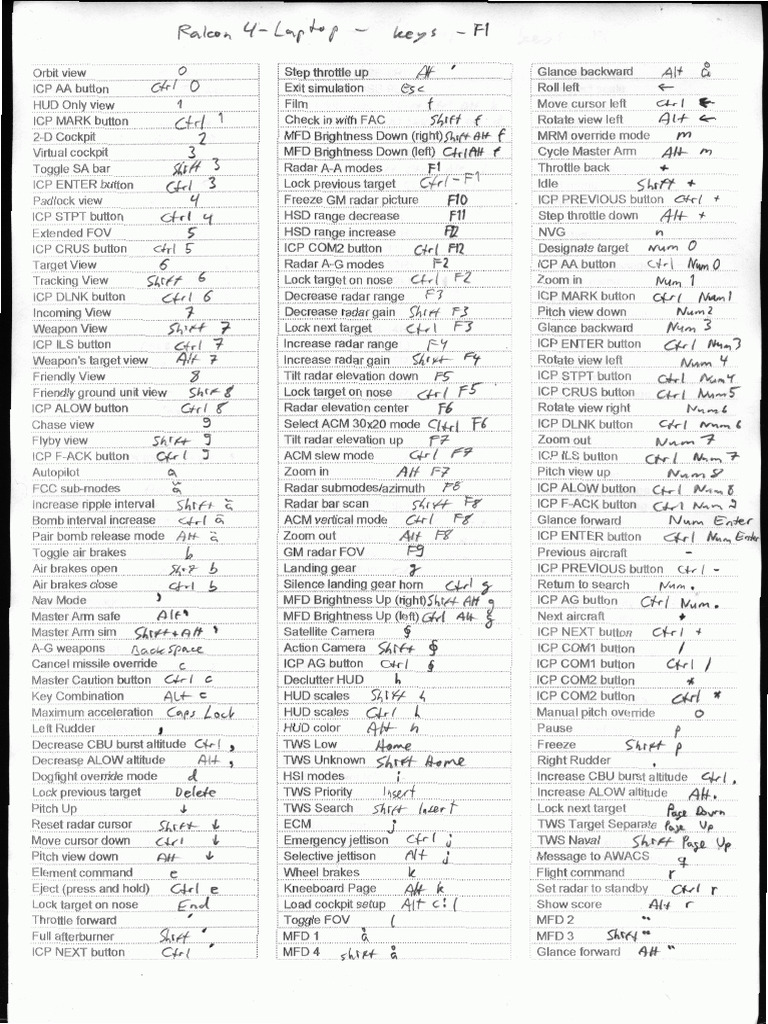 Falcon 4-Laptop - keys - F1
Orbit view 0
ICP AA button Ctrl 0
HUD Only view 1
ICP MARK button Ctrl 1
2-D Cockpit 2
Virtual cockpit 3
Toggle SA bar Shift 3
ICP ENTER button Ctrl 3
Padlock view 4
ICP STPT button Ctrl 4
Extended FOV 5
ICP CRUS button Ctrl 5
Target View 6
Tracking View Shift 6
ICP DLNK button Ctrl 6
Incoming View 7
Weapon View Shift 7
ICP ILS button Ctrl 7
Weapon's target view Alt 7
Friendly View 8
Friendly ground unit view Shift 8
ICP ALOW button Ctrl 8
Chase view 9
Flyby view Shift 9
ICP F-ACK button Ctrl 9
Autopilot a
FCC sub-modes ä
Increase ripple interval Shift ä
Bomb interval increase Ctrl ä
Pair bomb release mode Alt ä
Toggle air brakes b
Air brakes open Shift b
Air brakes close Ctrl b
Nav Mode '
Master Arm safe Alt '
Master Arm sim Shift+Alt '
A-G weapons Backspace
Cancel missile override c
Master Caution button Ctrl c
Key Combination Alt c
Maximum acceleration Caps Lock
Left Rudder ,
Decrease CBU burst altitude Ctrl ,
Decrease ALOW altitude Alt ,
Dogfight override mode d
Lock previous target Delete
Pitch Up ↓
Reset radar cursor Shift ↓
Move cursor down Ctrl ↓
Pitch view down Alt ↓
Element command e
Eject (press and hold) Ctrl e
Lock target on nose End
Throttle forward ´
Full afterburner Shift ´
ICP NEXT button Ctrl ´
Step throttle up Alt ´
Exit simulation esc
Film f
Check in with FAC Shift f
MFD Brightness Down (right) Shift Alt f
MFD Brightness Down (left) Ctrl Alt f
Radar A-A modes F1
Lock previous target Ctrl - F1
Freeze GM radar picture F10
HSD range decrease F11
HSD range increase F12
ICP COM2 button Ctrl F12
Radar A-G modes F2
Lock target on nose Ctrl F2
Decrease radar range F3
Decrease radar gain Shift F3
Lock next target Ctrl F3
Increase radar range F4
Increase radar gain Shift F4
Tilt radar elevation down F5
Lock target on nose Ctrl F5
Radar elevation center F6
Select ACM 30x20 mode Ctrl F6
Tilt radar elevation up F7
ACM slew mode Ctrl F7
Zoom in Alt F7
Radar submodes/azimuth F8
Radar bar scan Shift F8
ACM vertical mode Ctrl F8
Zoom out Alt F8
GM radar FOV F9
Landing gear g
Silence landing gear horn Ctrl g
MFD Brightness Up (right) Shift Alt g
MFD Brightness Up (left) Ctrl Alt g
Satellite Camera §
Action Camera Shift §
ICP AG button Ctrl §
Declutter HUD h
HUD scales Shift h
HUD scales Ctrl h
HUD color Alt h
TWS Low Home
TWS Unknown Shift Home
HSI modes i
TWS Priority Insert
TWS Search Shift Insert
ECM j
Emergency jettison Ctrl j
Selective jettison Alt j
Wheel brakes k
Kneeboard Page Alt k
Load cockpit setup Alt c : l
Toggle FOV l
MFD 1 å
MFD 4 shift å
Glance backward Alt å
Roll left ←
Move cursor left Ctrl ←
Rotate view left Alt ←
MRM override mode m
Cycle Master Arm Alt m
Throttle back +
Idle Shift +
ICP PREVIOUS button Ctrl +
Step throttle down Alt +
NVG n
Designate target Num 0
ICP AA button Ctrl Num 0
Zoom in Num 1
ICP MARK button Ctrl Num 1
Pitch view down Num 2
Glance backward Num 3
ICP ENTER button Ctrl Num 3
Rotate view left Num 4
ICP STPT button Ctrl Num 4
ICP CRUS button Ctrl Num 5
Rotate view right Num 6
ICP DLNK button Ctrl Num 6
Zoom out Num 7
ICP ILS button Ctrl Num 7
Pitch view up Num 8
ICP ALOW button Ctrl Num 8
ICP F-ACK button Ctrl Num 9
Glance forward Num Enter
ICP ENTER button Ctrl Num Enter
Previous aircraft -
ICP PREVIOUS button Ctrl -
Return to search Num .
ICP AG button Ctrl Num .
Next aircraft +
ICP NEXT button Ctrl +
ICP COM1 button /
ICP COM1 button Ctrl /
ICP COM2 button *
ICP COM2 button Ctrl *
Manual pitch override o
Pause p
Freeze Shift p
Right Rudder .
Increase CBU burst altitude Ctrl .
Increase ALOW altitude Alt .
Lock next target Page Down
TWS Target Separate Page Up
TWS Naval Shift Page Up
Message to AWACS q
Flight command r
Set radar to standby Ctrl r
Show score Alt r
MFD 2 "
MFD 3 Shift "
Glance forward Alt "